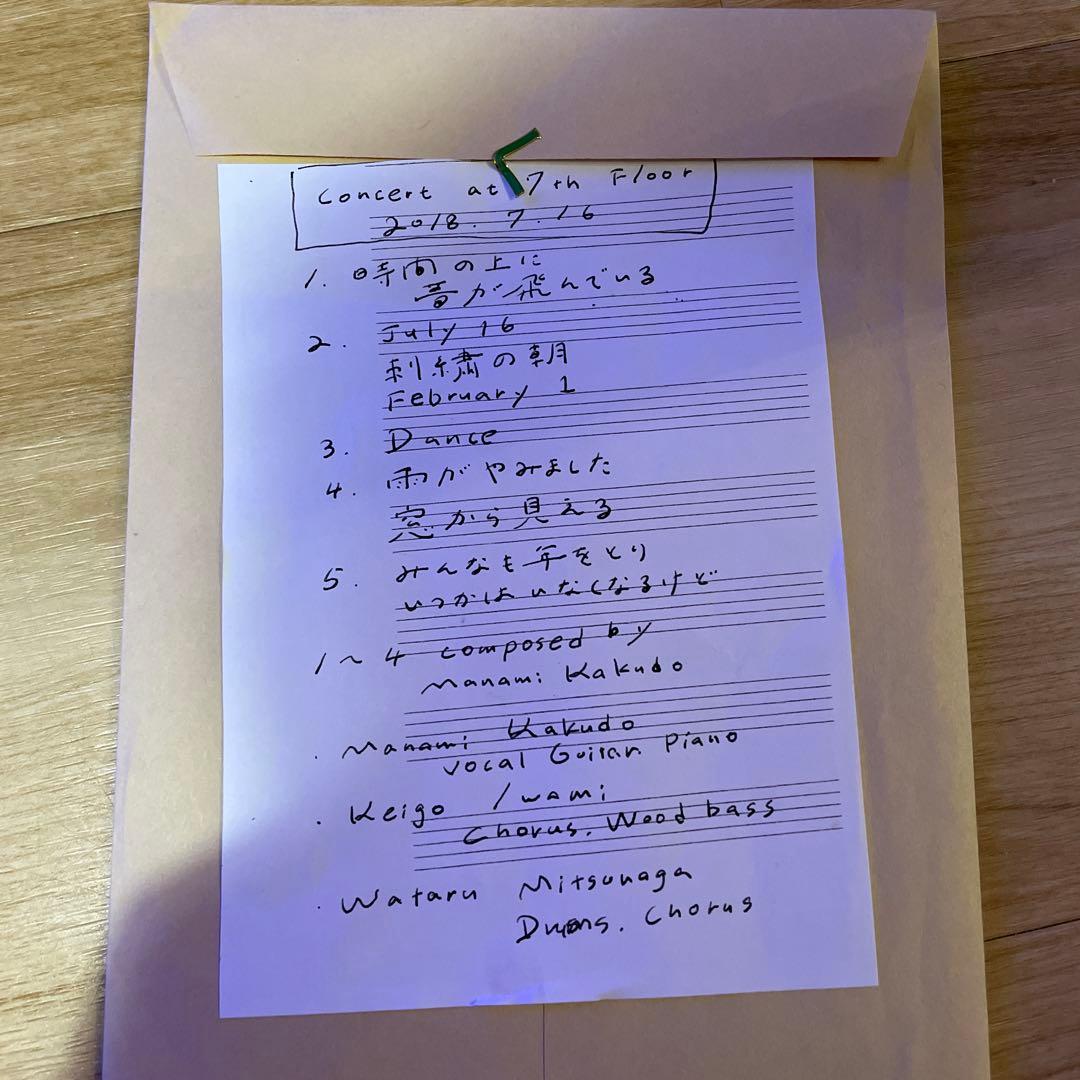 Concert at 7th Floor
2018. 7. 16
1. 時間の上に
音が飛んでいる
2. July 16
刺繍の朝
February 1
3. Dance
4. 雨がやみました
窓から見える
5. みんなも年をとり
いつかはいなくなるけど
1〜4 composed by
Manami Kakudo
. Manami Kakudo
Vocal Guitar Piano
. Keigo Iwami
Chorus. Wood bass
. Wataru Mitsunaga
Drums. Chorus